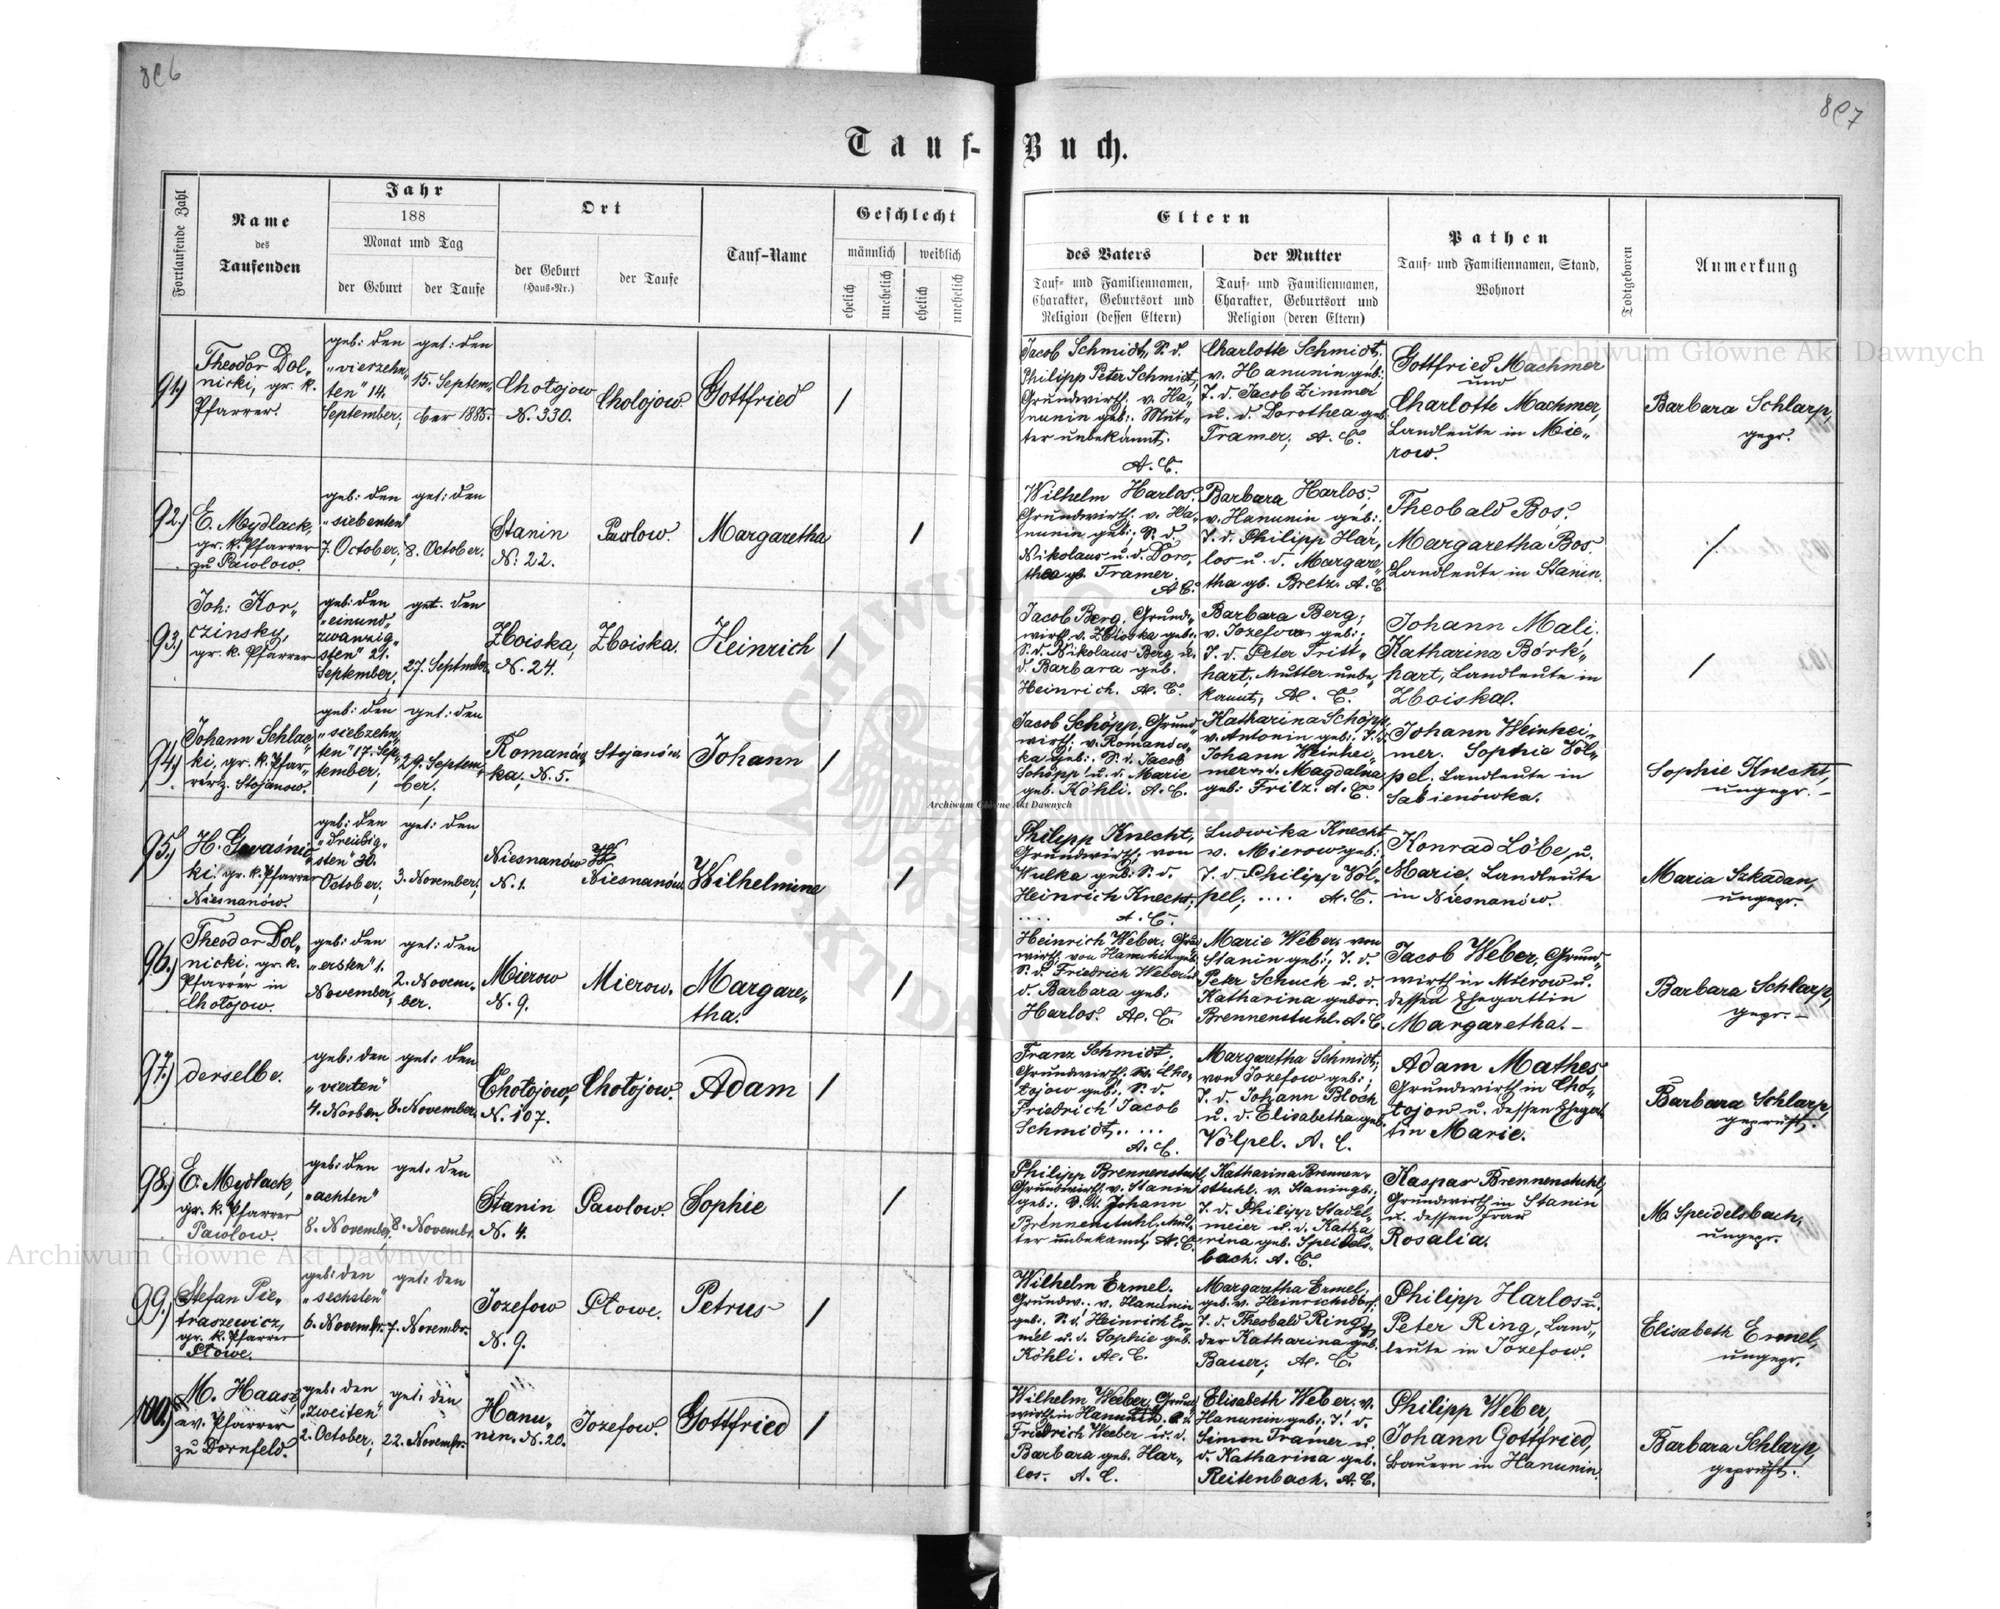 8C6
8C7
Tauf-Buch.
Fortlaufende Zahl
Name
des
Taufenden
Jahr
188
Monat und Tag
der Geburt
der Taufe
Ort
der Geburt
(Haus-Nr.)
der Taufe
Tauf-Name
Geschlecht
männlich
weiblich
ehelich
unehelich
ehelich
unehelich
Eltern
des Vaters
Tauf- und Familiennamen,
Charakter, Geburtsort und
Religion (dessen Eltern)
der Mutter
Tauf- und Familiennamen,
Charakter, Geburtsort und
Religion (deren Eltern)
Pathen
Tauf- und Familiennamen, Stand,
Wohnort
Todtgeboren
Anmerkung
91.)
Theodor Dol„
nicki, gr. k.
Pfarrer.
geb: den
„vierzehn„
ten" 14.
September;
get: den
15. Septem„
ber 1885.
Chołojow
N. 330.
Cholojow.
Gottfried
/
Jacob Schmidt, S. d.
Philipp Peter Schmidt,
Grundwirth, v. Ha„
nunin geb:. Mut„
ter unbekannt.
A. C.
Charlotte Schmidt,
v. Hanunin geb:
T. d. Jacob Zimmer
u. d. Dorothea geb.
Tramer; A. C.
Gottfried Machmer
und
Charlotte Machmer,
Landleute in Mie„
row.
Barbara Schlarp,
gepr.
92.)
E. Mydlack,
gr. k. Pfarrer
zu Pawlow.
geb: den
„siebenten"
7. October;
get: den
8. October.
Stanin
N: 22.
Pawlow.
Margaretha
/
Wilhelm Harlos.
Grundwirth. v. Ha„
nunin geb:, S. d.
Nikolaus u. d. Doro„
thea gb. Tramer.
A. C.
Barbara Harlos,
v. Hanunin geb:.
T. d. Philipp Har„
los u. d. Margare„
tha gb. Bretz. A. C.
Theobald Bos,
Margaretha Bos.
Landleute in Stanin.
/
93.)
Joh: Kor„
czinsky,
gr. k. Pfarrer
geb: den
„einund„
zwanzig„
sten" 21.
September;
get. den
27. Septmber
Zboiska,
N. 24.
Zboiska.
Heinrich
/
Jacob Berg, Grund„
wirth v. Zboiska geb:.
S. d. Nikolaus Berg u.
d. Barbara geb.
Heinrich. A. C.
Barbara Berg;
v. Jozefow geb:;
T. d. Peter Tritt„
hart; Mutter unbe„
kannt, A. C.
Johann Mali.
Katharina Bork„
hart, Landleute in
Zboiska.
/
94.)
Johann Schlac„
ki, gr. k. Pfar„
rer z. Stojanow.
geb: den
„siebzehn„
ten" 17. Sep„
tember;
get: den
29. Septem„
ber;
Romanów„
ka, N. 5.
Stojanów.
Johann
/
Jacob Schöpp, Grund„
wirth; v. Romanów„
ka geb:. S. d. Jacob
Schöpp u. d. Marie
geb. Köhli. A. C.
Katharina Schöpp,
v. Antonin geb:, T. d.
Johann Weinhei„
mer u. d. Magdalna
geb: Fritz. A. C.
Johann Weinhei„
mer. Sophie Völ„
pel. Landleute in
Sabienówka.
Sophie Knecht,
ungepr.
95.)
ki, gr. k. Pfarrer
Niesnanów.
geb: den
„dreißig„
sten" 30.
October;
get: den
3. November;
Niesnanów
N. 1.
Niesnanów
Wilhelmine
/
Philipp Knecht,
Grundwirth, von
Wulka geb: S. d.
Heinrich Knecht;
.... A. C.
Ludwika Knecht
v. Mierow geb:
T. d. Philipp Völ„
pel; .... A. C.
Konrad Löbe, u.
Marie, Landleute
in Niesnanów.
Maria Szkadan,
ungepr.
96.)
Theodor Dol„
nicki, gr. k.
Pfarrer in
Chołojow.
geb: den
„ersten" 1.
November;
get: den
2. Novem„
ber.
Mierow
N. 9.
Mierow.
Margare„
tha.
/
Heinrich Weber, Grund„
wirth, von Hanunin geb.
S. d. Friedrich Weber u.
d. Barbara geb:
Harlos. A. C.
Marie Weber, von
Stanin geb:, T. d.
Peter Schuck u. d.
Katharina gebor.
Brennenstuhl. A. C.
Jacob Weber, Grund„
wirth in Mierow u.
dessen Ehegattin
Margaretha.
Barbara Schlarp,
gepr.
97.)
derselbe.
geb: den
„vierten"
4. Novber.
get: den
8. November.
Chołojow,
N. 107.
Chołojow.
Adam
/
Franz Schmidt.
Grundwirth. v. Cho„
łojow geb:, S. d.
Friedrich Jacob
Schmidt. ...
A. C.
Margaretha Schmidt,
von Jozefow geb:;
T. d. Johann Bloch
u. d. Elisabetha geb.
Völpel. A. C.
Adam Mathes
Grundwirth in Cho„
łojow u. dessen Ehegat„
tin Marie.
Barbara Schlarp,
geprüft.
98.)
E. Mydlack,
gr. k. Pfarrer
Pawlow.
geb: den
„achten"
8. Novembr.
get: den
8. Novembr.
Stanin
N. 4.
Pawlow.
Sophie
/
Philipp Brennenstuhl,
Grundwirth v. Stanin
geb:, S. d. Johann
Brennenstuhl, Mut„
ter unbekannt, A. C.
Katharina Brennen„
stuhl. v. Stanin gb:;
T. d. Philipp Stadel„
meier u. d. Katha„
rina geb. Speidels„
bach. A. C.
Kaspar Brennenstuhl,
Grundwirth in Stanin
u. dessen Frau
Rosalia.
M. Speidelsbach,
ungepr.
99.)
Stefan Pie„
traszewicz,
gr. k. Pfarrer
Płowe.
geb: den
„sechsten"
6. Novembr.
get: den
7. Novembr.
Jozefow
N. 9.
Płowe.
Petrus
/
Wilhelm Ermel.
Grundw:. v. Hanunin
geb:, S. d. Heinrich Er„
mel u. d. Sophie geb.
Köhli. A. C.
Margaretha Ermel;
geb. v. Heinrichsdorf,
T. d. Theobald Ring u.
der Katharina geb.
Bauer; A. C.
Philipp Harlos u.
Peter Ring, Land„
leute in Jozefow.
Elisabeth Ermel,
ungepr.
100.)
M. Haase,
ev. Pfarrer
zu Dornfeld.
geb: den
„zweiten"
2. October;
get: den
22. Novembr.
Hanu„
nin. N. 20.
Jozefow.
Gottfried
/
Wilhelm Weber, Grund„
wirth in Hanunin. S. d.
Friedrich Weber u. d.
Barbara geb. Har„
los. A. C.
Elisabeth Weber. v.
Hanunin geb:, T. d.
Simon Tramer u.
d. Katharina geb.
Reitenbach. A. C.
Philipp Weber,
Johann Gottfried,
Bauern in Hanunin.
Barbara Schlarp,
geprüft.
Archiwum Główne Akt Dawnych
Archiwum Główne Akt Dawnych
Archiwum Główne Akt Dawnych